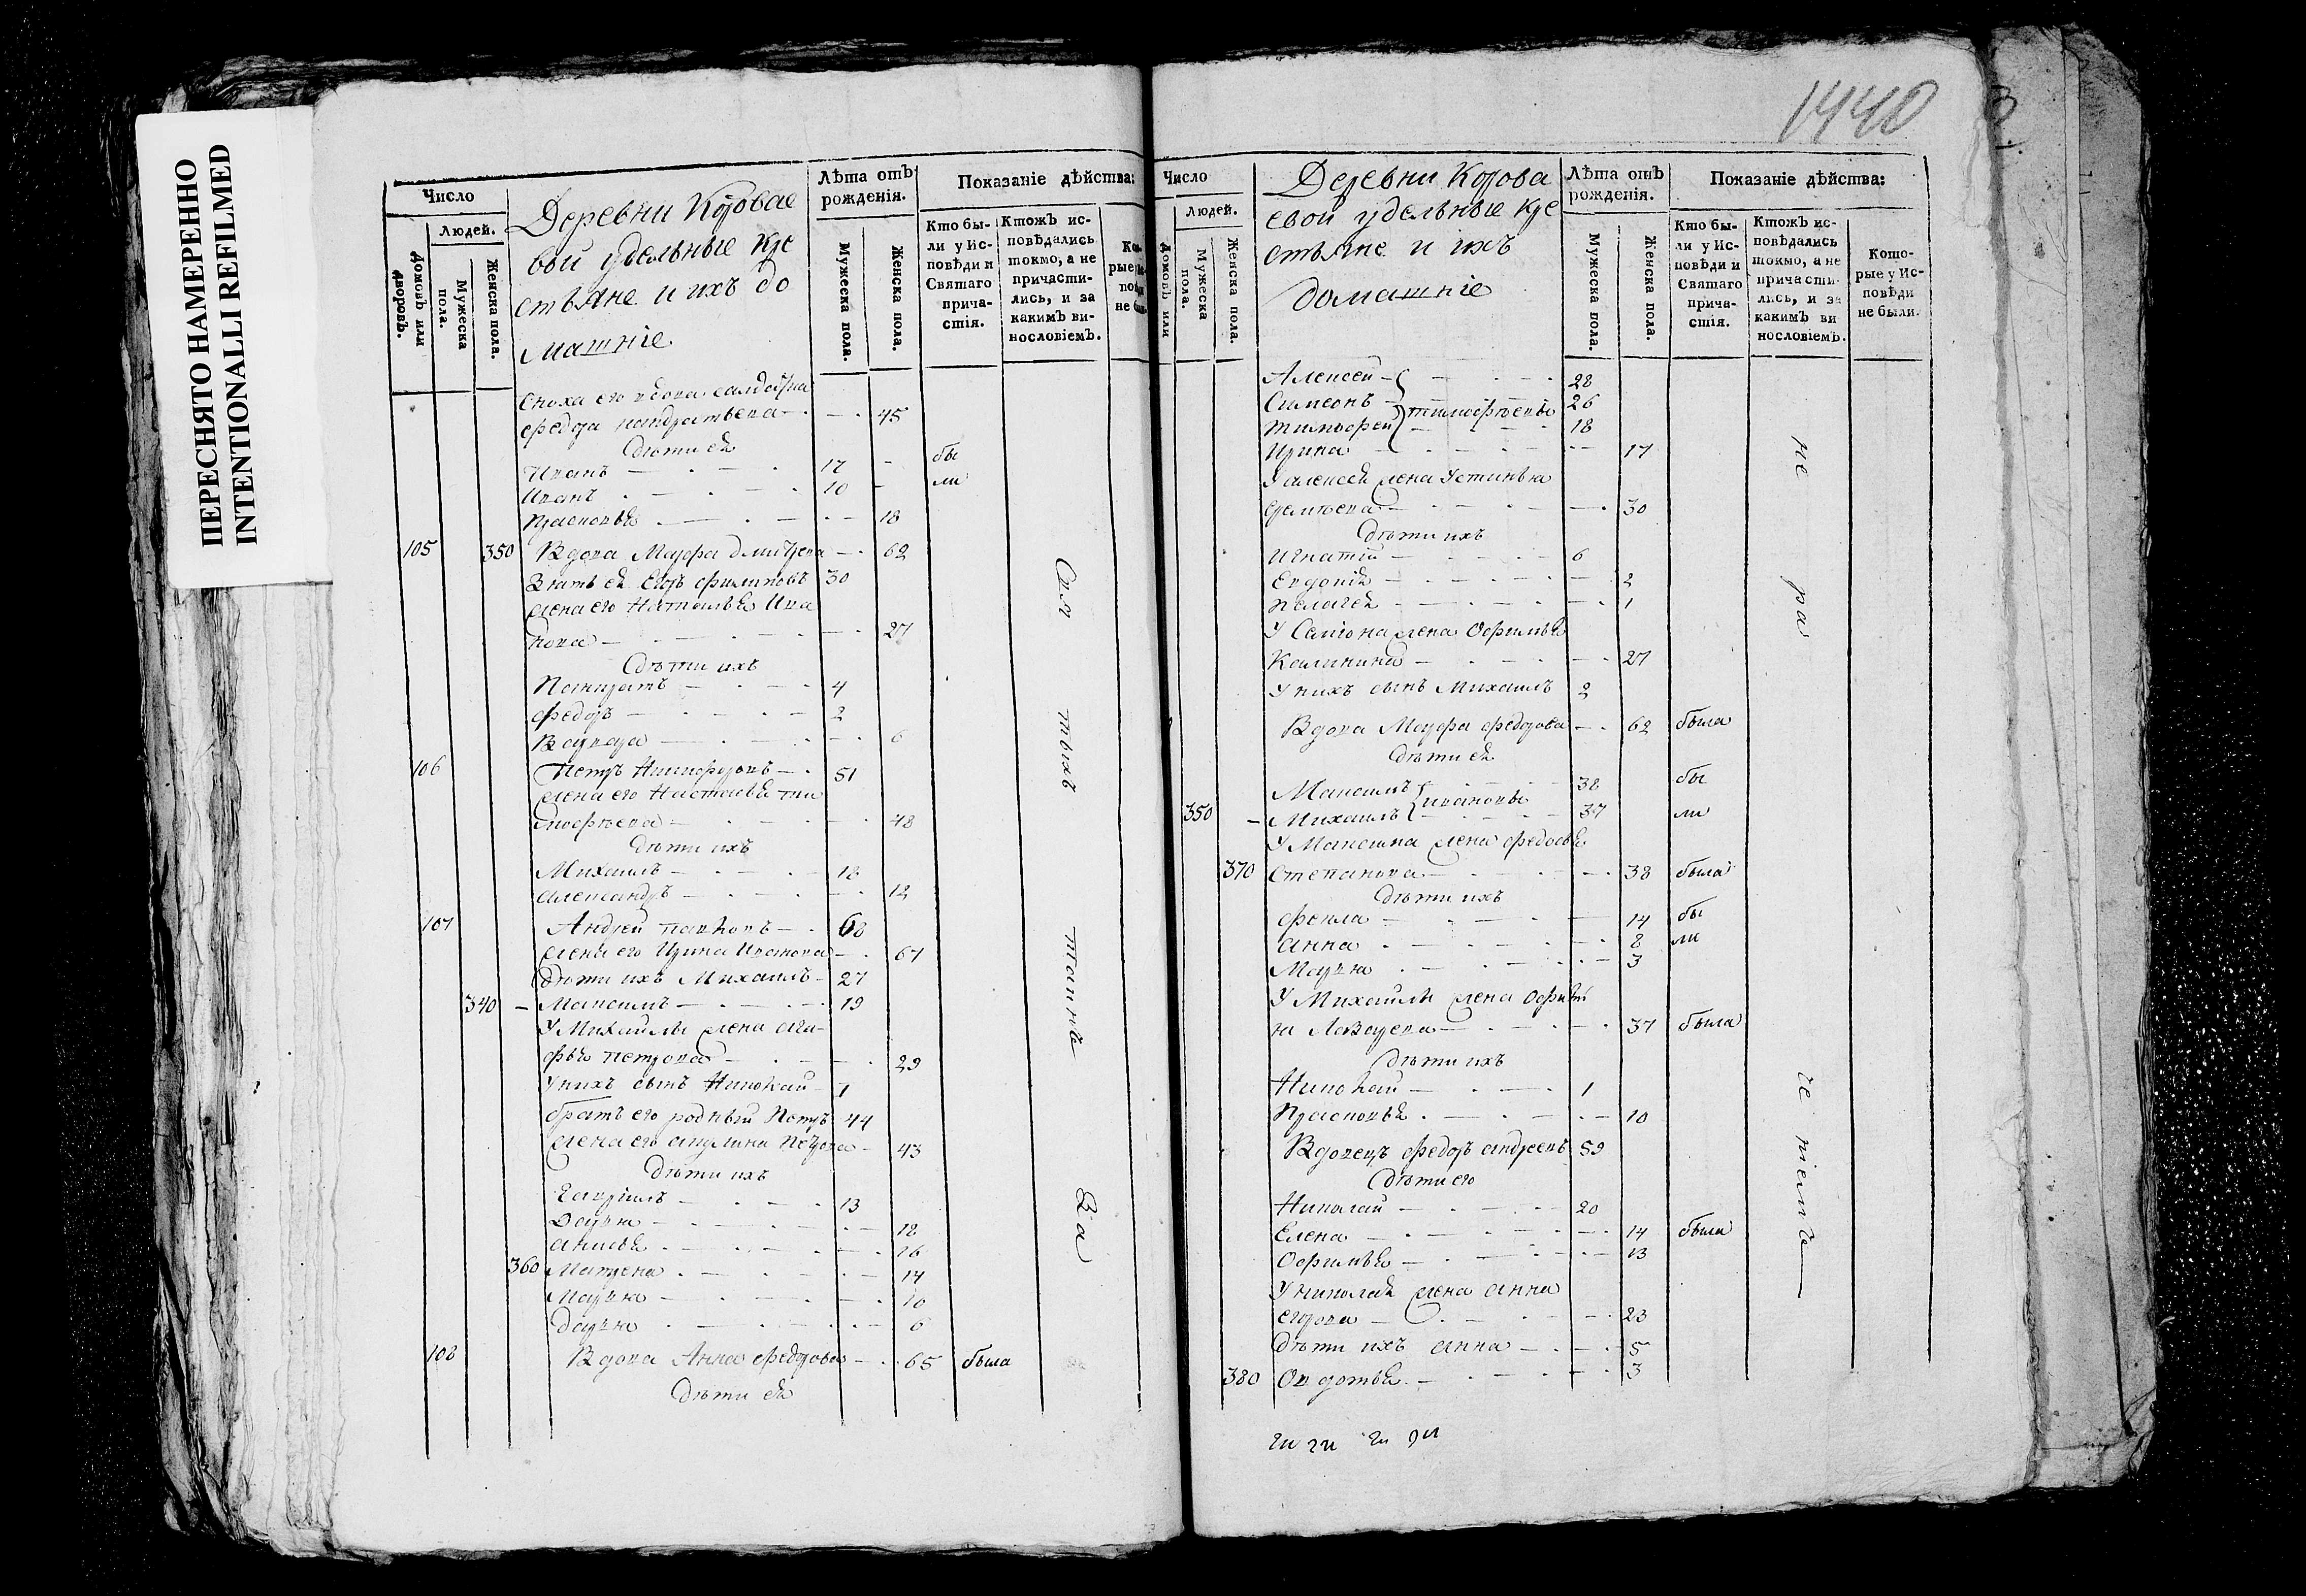 ПЕРЕСНЯТО НАМЕРЕННО
INTENTIONALLI REFILMED
Число
Людей.
Домовъ или дворовъ.
Мужеска пола.
Женска пола.
Деревни Корова
евой удельные кре
стьяне и ихъ до
машніе
Лѣта отъ рожденія.
Мужеска пола.
Женска пола.
Показаніе дѣйства:
Кто бы-
ли у Ис-
повѣди и
Святаго
прича-
стія.
Ктожъ ис-
повѣдались
токмо, а не
причасти-
лись, и за
какимъ ви-
нословіемъ.
сноха его вдова салдатка
федора кондратьева 45
дѣти ея
Иванъ 17 бы
Иванъ 10 ли
Прасковья 18
105 350 Вдова Марфа дмитрева 62
Зять ея Егоръ филиповъ 30
жена его Наталья Ива
нова 27
дѣти ихъ
Панкратъ 4
федоръ 2
Варвара 6
106 Петръ Никифоровъ 51
жена его Настасья ти
мофѣева 48
дѣти ихъ
Михаилъ 18
александръ 12
107 Андрей павловъ 68
жена его Ирина Иванова 67
дѣти ихъ Михаилъ 27
340 Максимъ 19
У Михаилы жена ага
фья петрова 29
У нихъ сынъ Николай 1
братъ его родный Петръ 44
жена его акулина Петрова 43
дѣти ихъ
Гавріилъ 13
Дарья 18
анисья 16
360 Матрена 14
Марья 10
дарья 6
108 Вдова Анна федорова 65 была
дѣти ея
Святыхъ таинъ За
1440
Число
Людей.
Домовъ или
Мужеска пола.
Женска пола.
Деревни Корова
евой удельные кре
стьяне и ихъ
домашніе
Лѣта отъ рожденія.
Мужеска пола.
Женска пола.
Показаніе дѣйства:
Кто бы-
ли у Ис-
повѣди и
Святаго
прича-
стія.
Ктожъ ис-
повѣдались
токмо, а не
причасти-
лись, и за
какимъ ви-
нословіемъ.
Кото-
рые у Ис-
повѣди
не были.
Алексей 28
Симеонъ тимофѣевы 26
тимофей 18
Ирина 17
У алексея жена Устинья
еремѣева 30
дѣти ихъ
Игнатій 6
Евдокія 2
пелагея 1
У Семіона жена Офимья
Калинина 27
У нихъ сынъ Михаилъ 2
Вдова Марфа федорова 62 была
дѣти ея
Максимъ 38 бы
350 Михаилъ ивановы 37 ли
У Максима жена федосья
370 Степанова 38 была
дѣти ихъ
фекла 14 бы
анна 8 ли
Марья 3
У Михаилы жена Офимь
я Лазарева 37 была
дѣти ихъ
Николай 1
Прасковья 10
Вдовецъ федоръ андреевъ 59
дѣти его
Николай 20
Елена 14 были
Офимья 13
У николая жена анна
егорова 23
дѣти ихъ анна 5
380 Овдотья 3
не ра че ніемъ